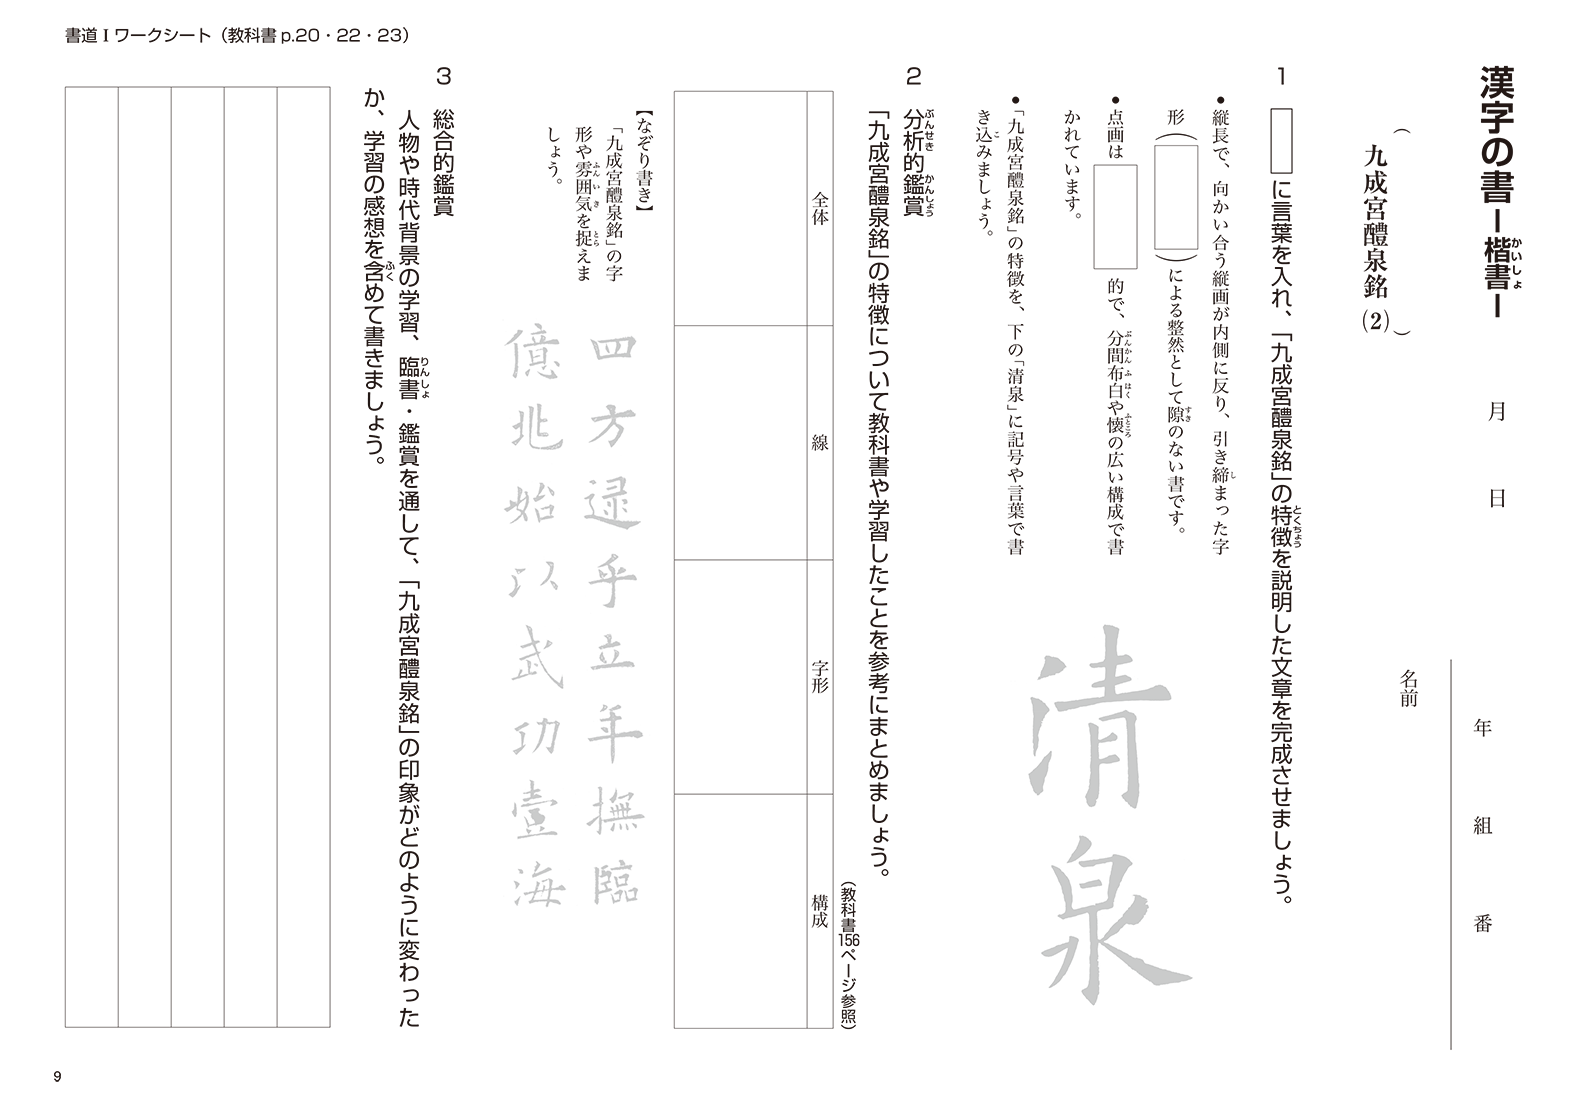 書道Ⅰワークシート（教科書 p.20・22・23）
漢字の書ー楷書ー
かいしょ
月　日
年　組　番
（九成宮醴泉銘(2)）
名前
1
に言葉を入れ、「九成宮醴泉銘」の特徴を説明した文章を完成させましょう。
とくちょう
●縦長で、向かい合う縦画が内側に反り、引き締まった字
し
形（　）による整然として隙のない書です。
すき
●点画は　的で、分間布白や懐の広い構成で書
ぶんかんふはく　ふところ
かれています。
●「九成宮醴泉銘」の特徴を、下の「清泉」に記号や言葉で書
き込みましょう。
こ
清泉
2　分析的鑑賞
ぶんせき　かんしょう
「九成宮醴泉銘」の特徴について教科書や学習したことを参考にまとめましょう。
（教科書156ページ参照）
全体
線
字形
構成
【なぞり書き】
「九成宮醴泉銘」の字
形や雰囲気を捉えま
ふんいき　とら
しょう。
四方逯乎立年撫臨
億兆始以武功壹海
3　総合的鑑賞
人物や時代背景の学習、臨書・鑑賞を通して、「九成宮醴泉銘」の印象がどのように変わった
りんしょ
か、学習の感想を含めて書きましょう。
ふく
9